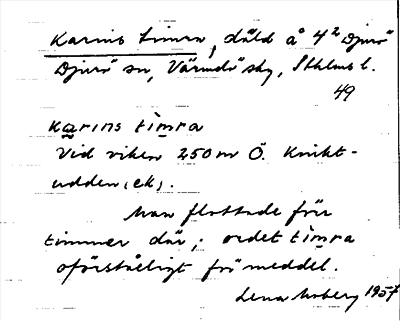 Karins timra, däld å 4² Djurö
Djurö sn, Värmdö skg, Sthlms l.
49
karins timra
Vid viken 250 m Ö. Knikt-
udden (ek).
Man flottade förr
timmer där; ordet timra
oförståeligt för meddel.
Lena Moberg 1957